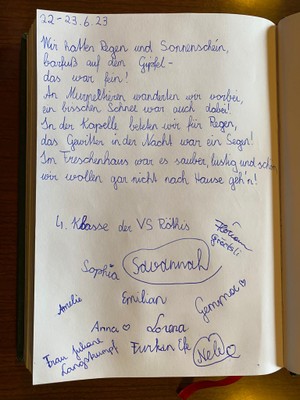 22-23.6.23
Wir hatten Regen und Sonnenschein,
barfuß auf dem Gipfel -
das war fein!
An Murmeltieren wanderten wir vorbei,
ein bisschen Schnee war auch dabei!
In der Kapelle beteten wir für Regen,
das Gewitter in der Nacht war ein Segen!
Im Freschenhaus war es sauber, lustig und schön
wir wollen gar nicht nach Hause geh'n!
4. Klasse der VS Röthis
Sophia Savannah
Amelie Emilian Gemma
Anna Lorena
Frau Juliane
Langskumpf